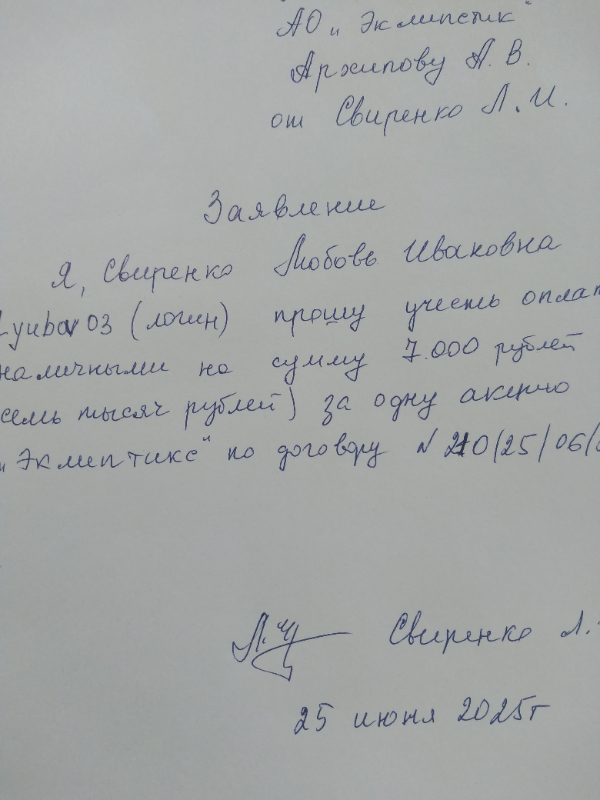 АО „Эклипстик"
Архипову А. В.
от Свиренко Л. И.
Заявление
Я, Свиренко Любовь Ивановна
Lyubov03 (логин) прошу учесть оплат
наличными на сумму 7.000 рублей
семь тысяч рублей) за одну акцию
„Эклиптикс" по договору N 210/25/06/
Л.И Свиренко Л.
25 июня 2025г